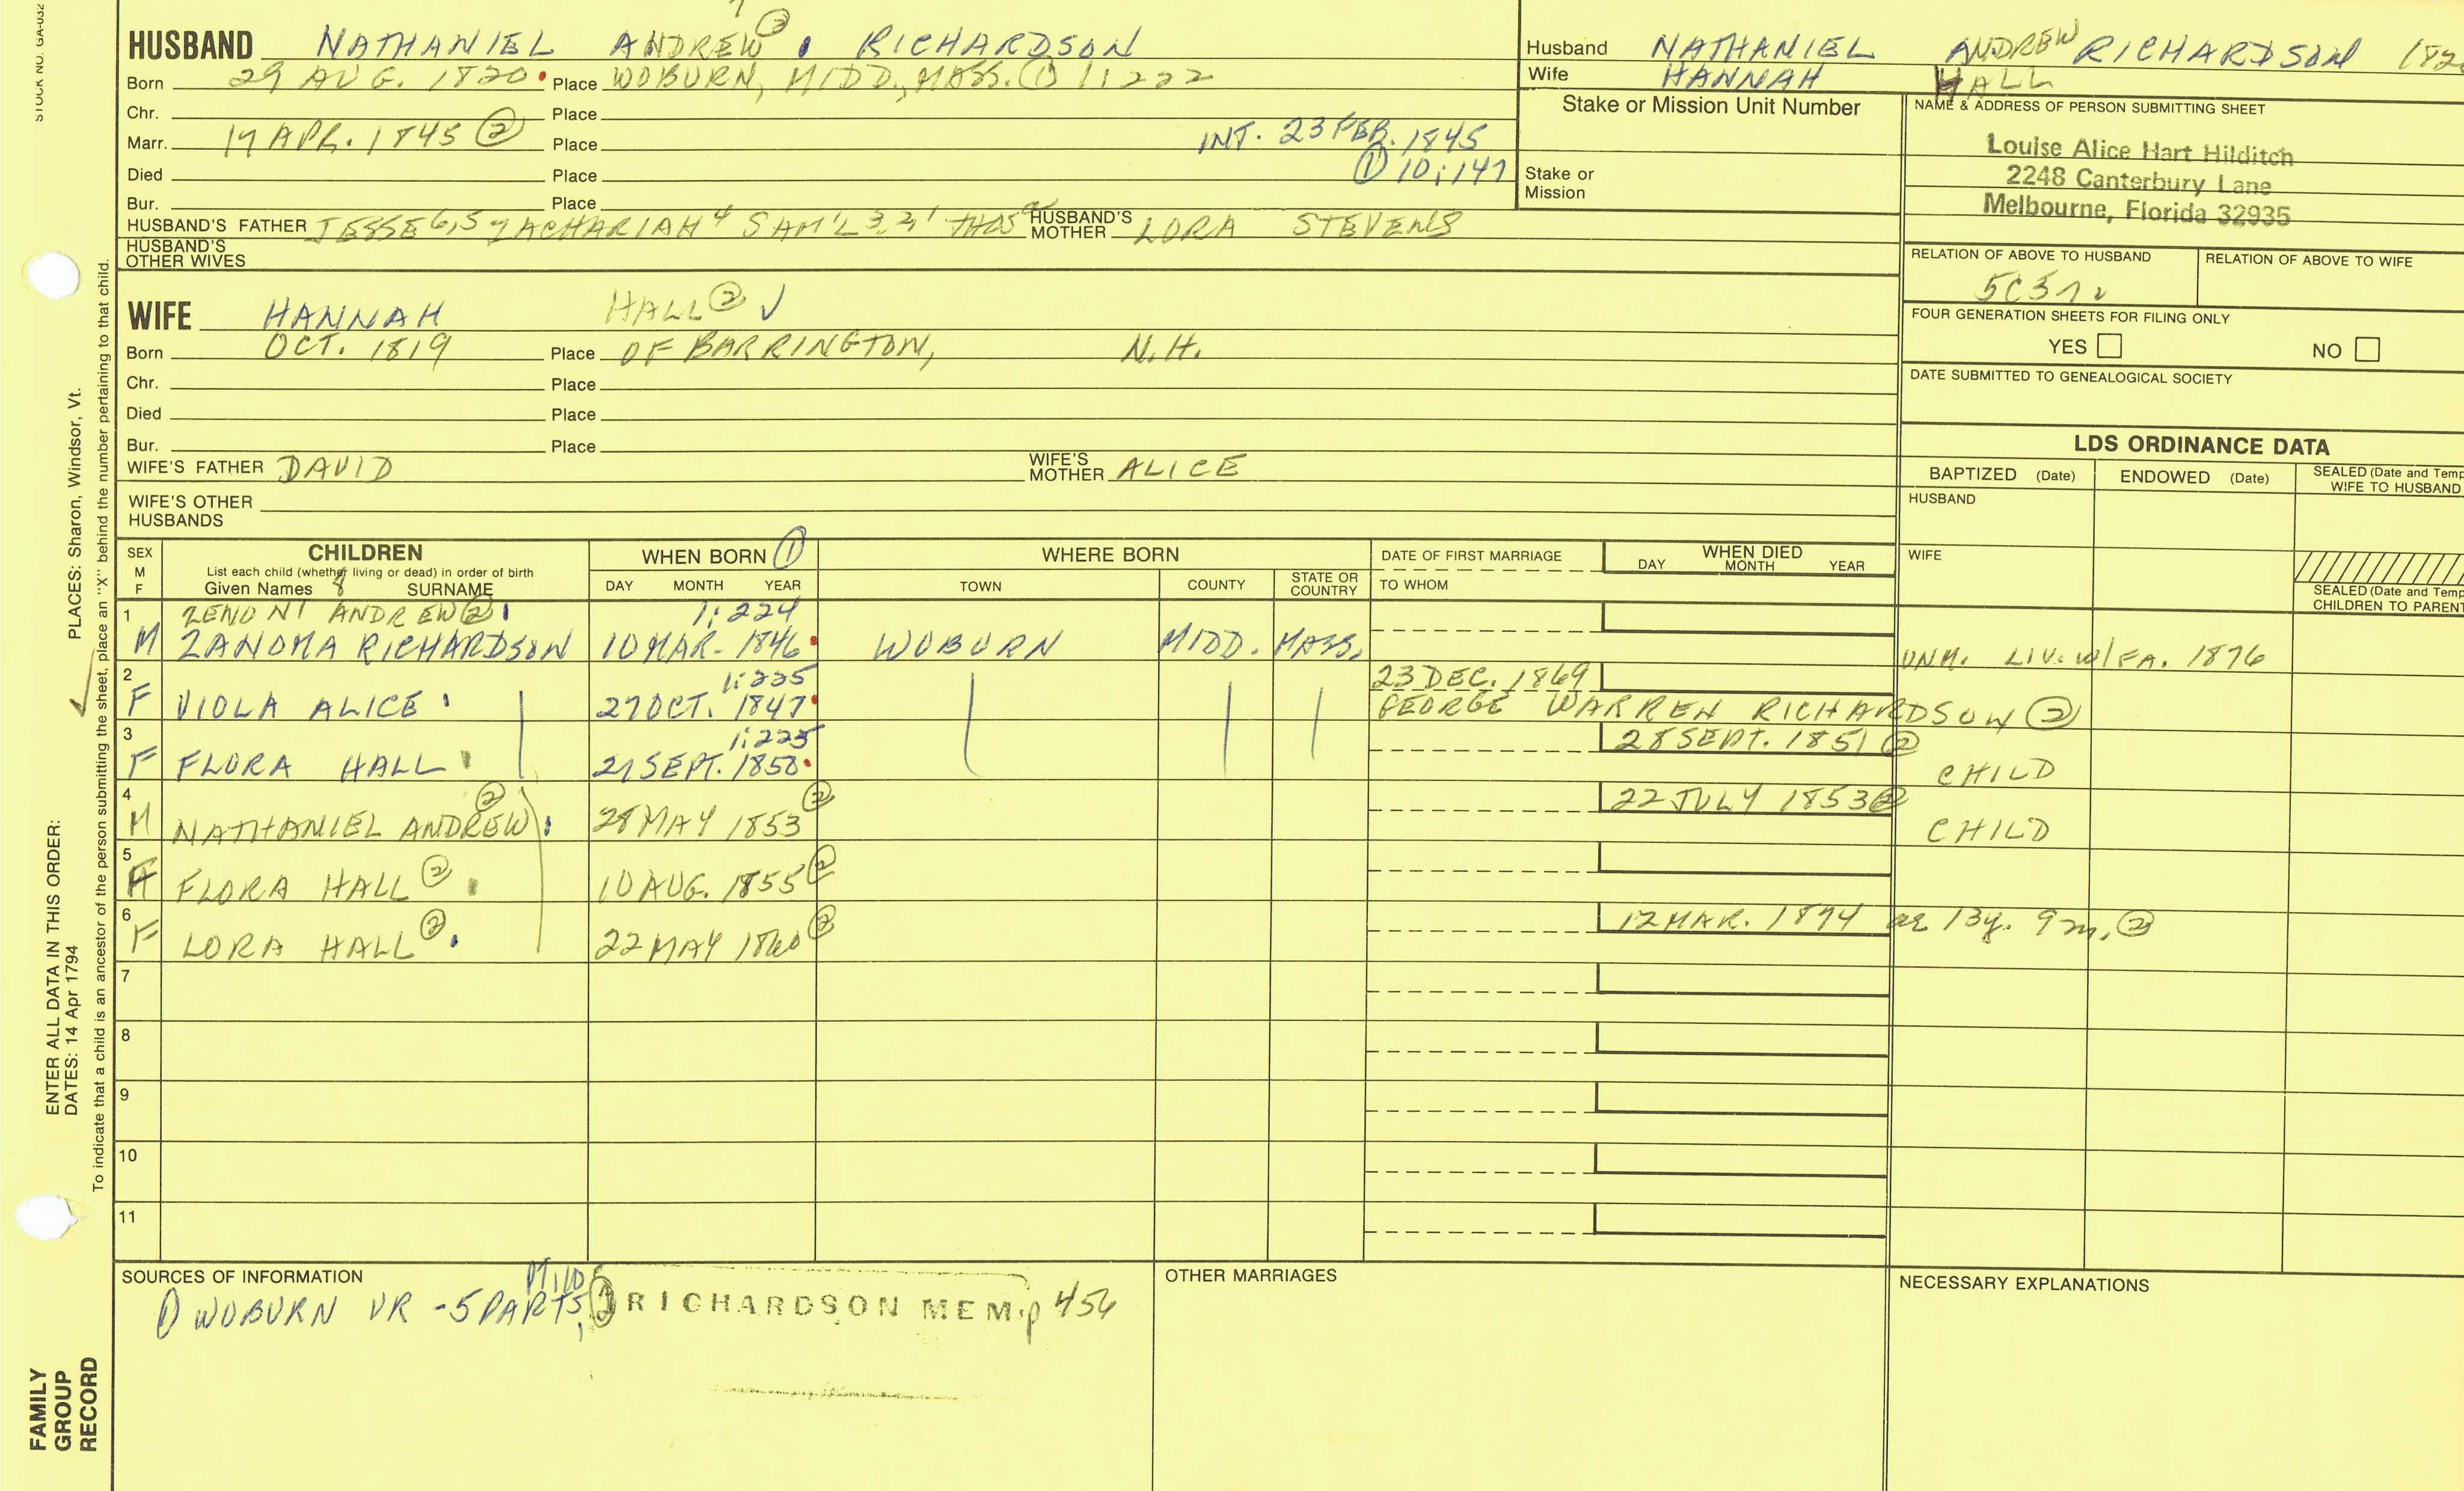 STOCK NO. GA-032
HUSBAND NATHANIEL ANDREW ② RICHARDSON
Born 29 AUG. 1820 Place WOBURN, MIDD., MASS. ① 1:222
Chr. Place
Marr. 17 APR. 1845 ② Place INT. 23 FEB. 1845
① 10:147
Died Place
Bur. Place
HUSBAND'S FATHER JESSE 6,5 ZACHARIAH 4 SAM'L 3,2, THOS 1 HUSBAND'S MOTHER LORA STEVENS
HUSBAND'S OTHER WIVES
Husband NATHANIEL ANDREW RICHARDSON 182
Wife HANNAH HALL
Stake or Mission Unit Number
Stake or
Mission
NAME & ADDRESS OF PERSON SUBMITTING SHEET
Louise Alice Hart Hilditch
2248 Canterbury Lane
Melbourne, Florida 32935
RELATION OF ABOVE TO HUSBAND RELATION OF ABOVE TO WIFE
5C3
FOUR GENERATION SHEETS FOR FILING ONLY
YES NO
DATE SUBMITTED TO GENEALOGICAL SOCIETY
WIFE HANNAH HALL ② ✓
Born OCT. 1819 Place OF BARRINGTON, N.H.
Chr. Place
Died Place
Bur. Place
WIFE'S FATHER DAVID WIFE'S MOTHER ALICE
WIFE'S OTHER
HUSBANDS
LDS ORDINANCE DATA
BAPTIZED (Date) ENDOWED (Date) SEALED (Date and Temp
WIFE TO HUSBAND
HUSBAND
WIFE
SEALED (Date and Temp
CHILDREN TO PARENT
SEX
M
F
CHILDREN
List each child (whether living or dead) in order of birth
Given Names 8 SURNAME
WHEN BORN ①
DAY MONTH YEAR
WHERE BORN
TOWN COUNTY STATE OR COUNTRY
DATE OF FIRST MARRIAGE
TO WHOM
WHEN DIED
DAY MONTH YEAR
1 ZENO NT ANDREW ② 1:224
M ZANOMA RICHARDSON 10 MAR. 1846 WOBURN MIDD. MASS. UNM. LIV. w/ FA. 1876
2 1:225 23 DEC. 1869
F VIOLA ALICE 27 OCT. 1847 GEORGE WARREN RICHARDSON ②
3 1:225 28 SEPT. 1851 ②
F FLORA HALL 27 SEPT. 1850 CHILD
4 ② ② 22 JULY 1853 ②
M NATHANIEL ANDREW 28 MAY 1853 CHILD
5
F FLORA HALL ② 10 AUG. 1855 ②
6 12 MAR. 1874 ae 13y. 9m. ②
F LORA HALL ② 22 MAY 1860 ②
7
8
9
10
11
SOURCES OF INFORMATION
① WOBURN VR - 5 PARTS, ② RICHARDSON MEM. p 456
OTHER MARRIAGES
NECESSARY EXPLANATIONS
ENTER ALL DATA IN THIS ORDER:
DATES: 14 Apr 1794 PLACES: Sharon, Windsor, Vt.
To indicate that a child is an ancestor of the person submitting the sheet, place an "X" behind the number pertaining to that child.
FAMILY
GROUP
RECORD